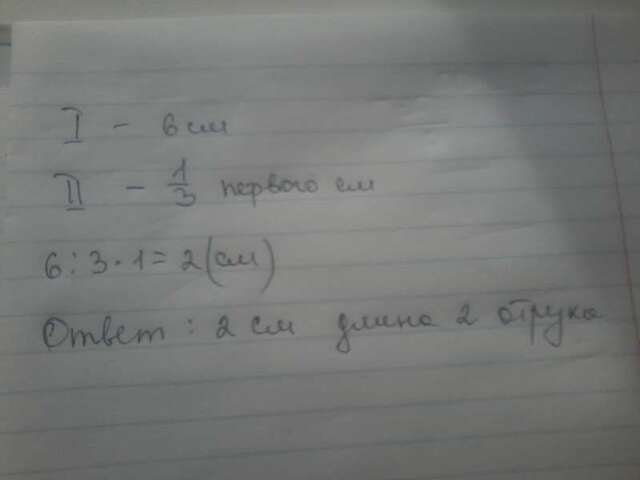 I - 6 см
II - 1/3 первого см
6 : 3 · 1 = 2 (см)
Ответ : 2 см длина 2 отрука